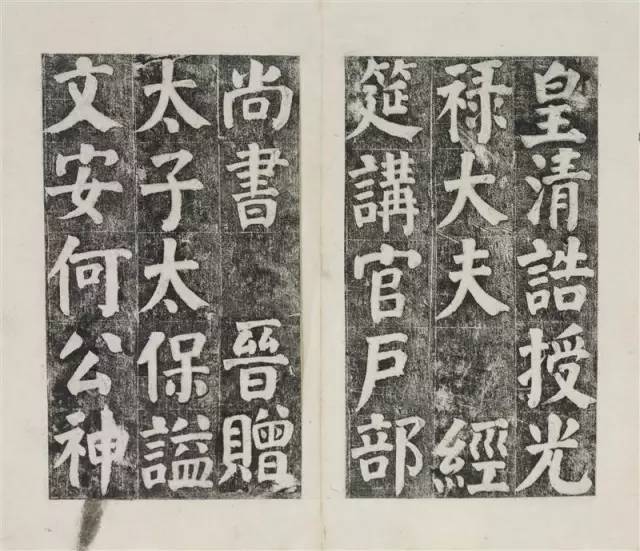 皇清誥授光
禄大夫 經
筵講官戶部
尚書 晉贈
太子太保謚
文安何公神